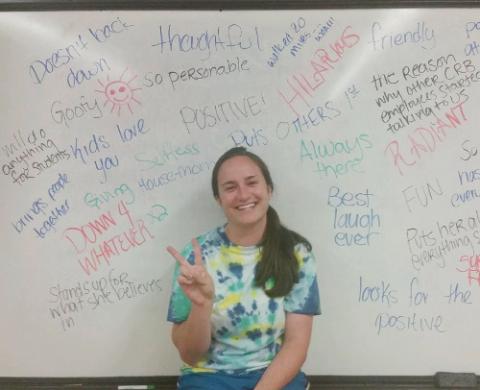 Doesn't back
down
thoughtful
walked 20
friendly
so personable
HILARIOUS
the reason
why other CRB
employees started
talking to us
Goofy
POSITIVE!
PUTS OTHERS 1st
will do
anything
for students
kids love
you
Selfless
Always
there
RADIANT
So
House-mom
brings people
together
Giving
DOWN 4
WHATEVER x2
Best
laugh
ever
FUN
Puts her
everything
Stands up for
what she believes
in
looks for the
positive